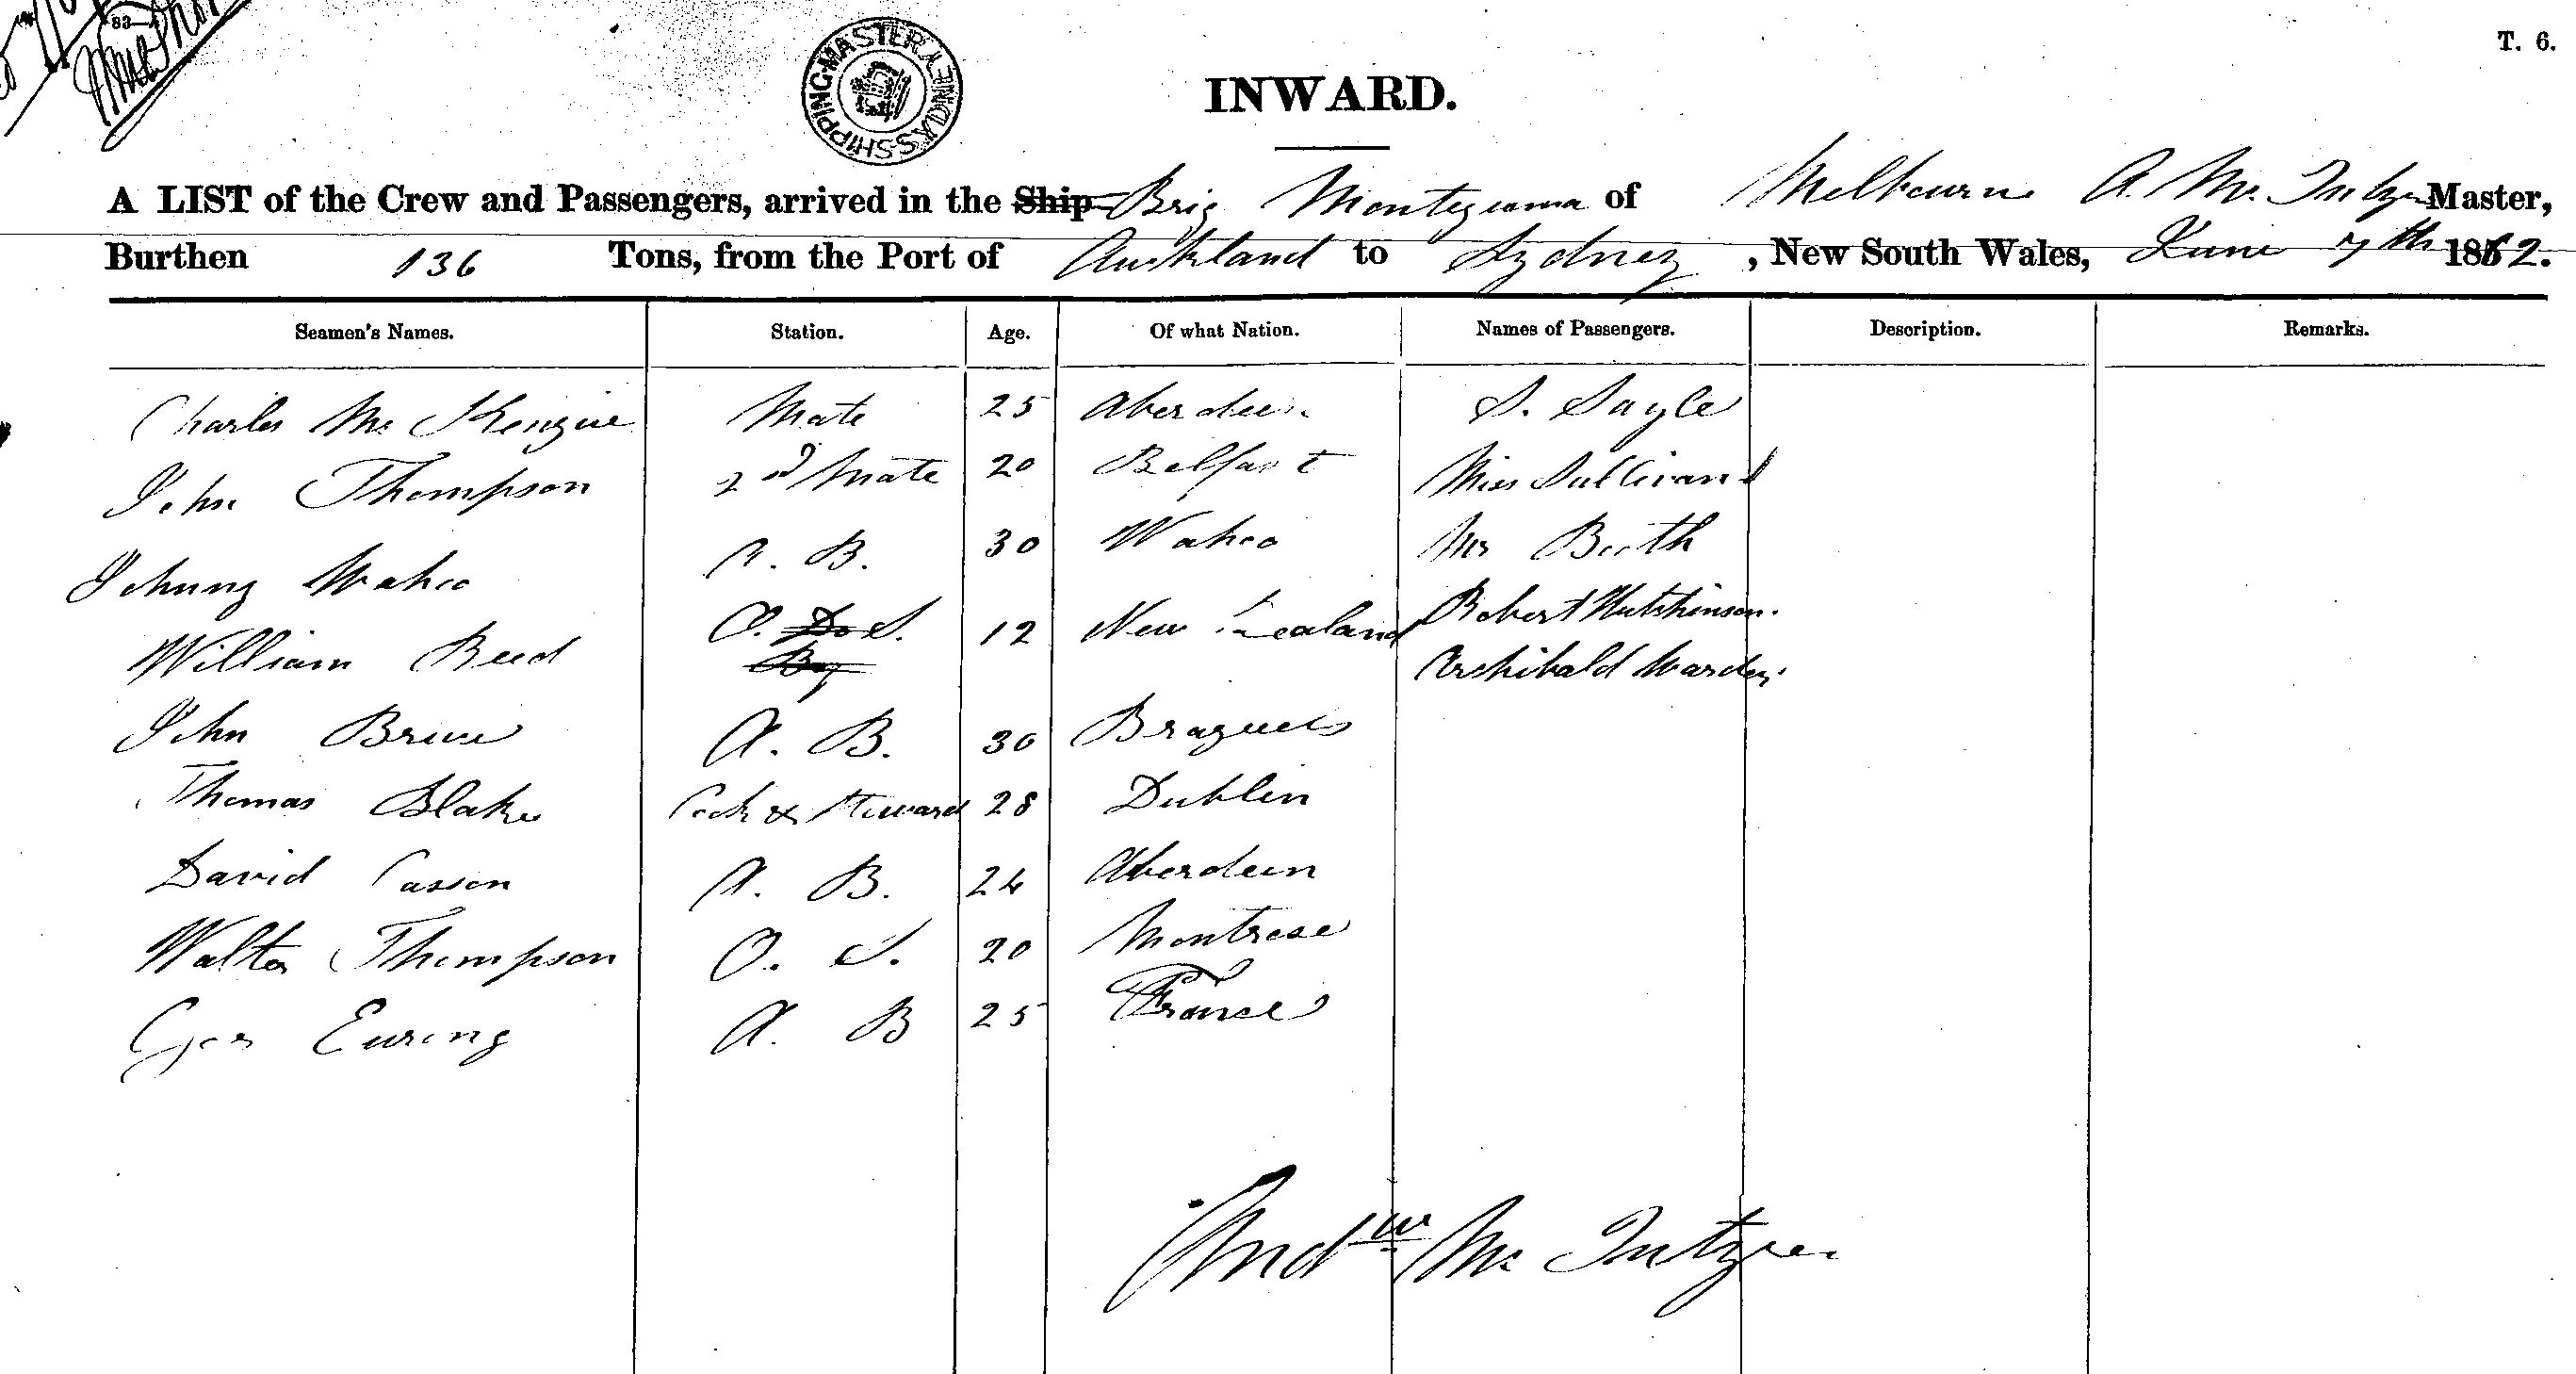 83
SHIPPING MASTER SYDNEY
T. 6.
INWARD.
A LIST of the Crew and Passengers, arrived in the Ship Brig Montezuma of Melbourne A. Mc Intyre Master,
Burthen 136 Tons, from the Port of Auckland to Sydney, New South Wales, June 7th 1862.
Seamen's Names. Station. Age. Of what Nation. Names of Passengers. Description. Remarks.
Charles Mc Kenzie Mate 25 Aberdeen S. Sayle
John Thompson 2nd Mate 20 Belfast Miss Sullivan
Johnny Wahoo A. B. 30 Wahoo Mr Booth
William Reed O. Do S. 12 New Zealand Robert Hutchinson.
Boy Archibald Warden
John Bruce A. B. 30
Thomas Blake Cook & Steward 28 Dublin
David Casson A. B. 24 Aberdeen
Walter Thompson O. S. 20 Montrose
Geo Euring A. B 25 France
Andw Mc Intyre